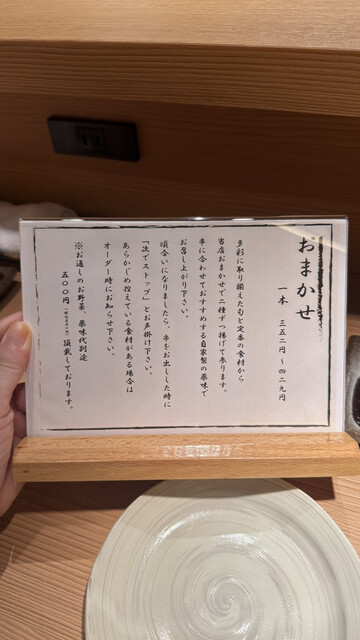 おまかせ
一本　三五二円～四二九円
多彩に取り揃えた旬と定番の食材から
当店おまかせで二種ずつ揚げて参ります。
串に合わせておすすめする自家製の薬味で
お召し上がり下さい。
頃合いになりましたら、串をお出しした時に
「次でストップ」とお声掛け下さい。
あらかじめ控えている食材がある場合は
オーダー時にお知らせ下さい。
※お通しのお野菜、薬味代別途
五〇〇円 頂戴しております。